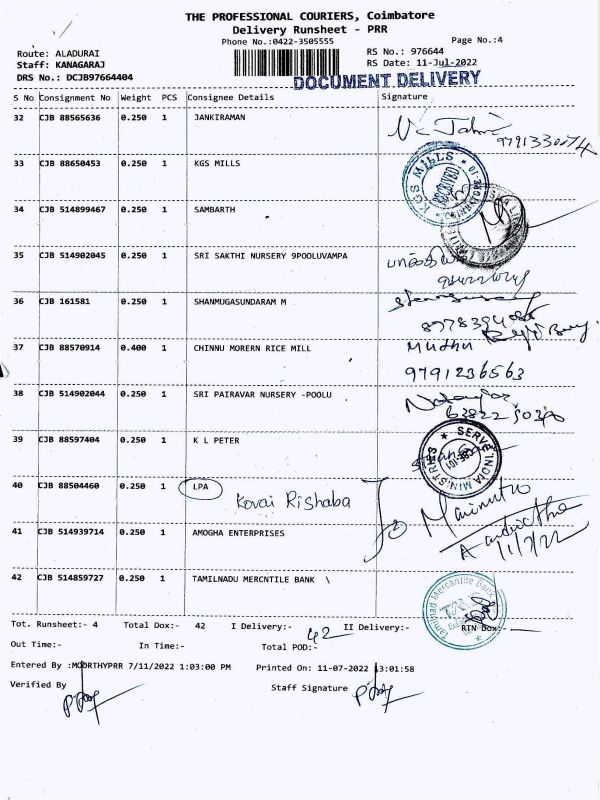 THE PROFESSIONAL COURIERS, Coimbatore
Delivery Runsheet - PRR
Phone No.:0422-3505555 Page No.:4
Route: ALADURAI RS No.: 976644
Staff: KANAGARAJ RS Date: 11-Jul-2022
DRS No.: DCJB97664404 DOCUMENT DELIVERY
S No Consignment No Weight PCS Consignee Details Signature
32 CJB 88565636 0.250 1 JANKIRAMAN
33 CJB 88650453 0.250 1 KGS MILLS KGS MILLS
34 CJB 514899467 0.250 1 SAMBARTH
35 CJB 514902045 0.250 1 SRI SAKTHI NURSERY 9POOLUVAMPA
36 CJB 161581 0.250 1 SHANMUGASUNDARAM M
37 CJB 88570914 0.400 1 CHINNU MORERN RICE MILL Muthu
9791236563
38 CJB 514902044 0.250 1 SRI PAIRAVAR NURSERY -POOLU
39 CJB 88597404 0.250 1 K L PETER SERVE INDIA MINISTRIES
40 CJB 88504460 0.250 1 LPA Kovai Rishaba Marimuthu
41 CJB 514939714 0.250 1 AMOGHA ENTERPRISES
11/7/22
42 CJB 514859727 0.250 1 TAMILNADU MERCNTILE BANK \ Tamilnad Mercantile Bank
Tot. Runsheet:- 4 Total Dox:- 42 I Delivery:- 42 II Delivery:- RTN Dox:-
Out Time:- In Time:- Total POD:-
Entered By :MOORTHYPRR 7/11/2022 1:03:00 PM Printed On: 11-07-2022 13:01:58
Verified By Staff Signature